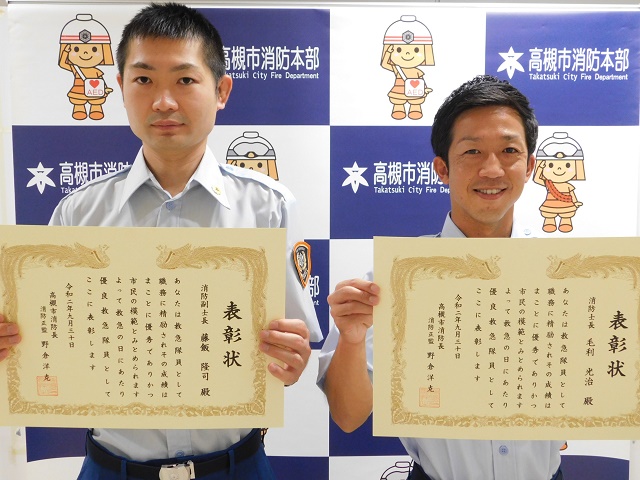 高槻市消防本部
Takatsuki City Fire Department
高槻市消防本部
Takatsuki City Fire Department
高槻市消防本部
Takatsuki City Fire Department
高槻市消防
Takatsuki City Fire Depart
AED
AED
表彰状
消防副士長 藤飯 隆司 殿
あなたは救急隊員として
職務に精励されその成績は
まことに優秀でありかつ
市民の模範とみとめられます
よって救急の日にあたり
優良救急隊員として
ここに表彰します
令和二年九月三十日
高槻市消防長
消防正監 野倉洋克
表彰状
消防士長 毛利 光治 殿
あなたは救急隊員として
職務に精励されその成績は
まことに優秀でありかつ
市民の模範とみとめられます
よって救急の日にあたり
優良救急隊員として
ここに表彰します
令和二年九月三十日
高槻市消防長
消防正監 野倉洋克